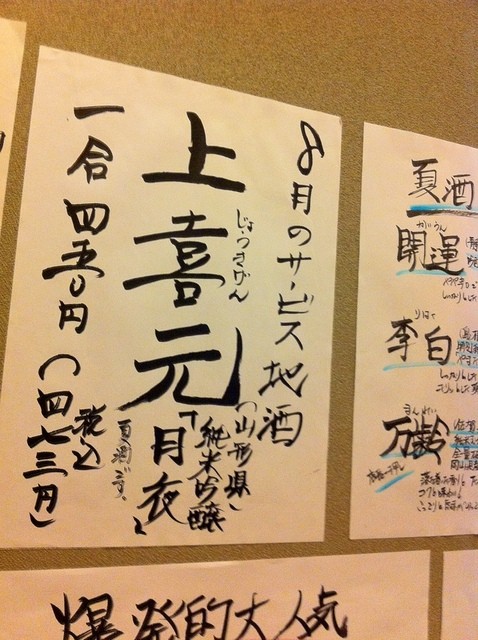 8月のサービス地酒
上喜元
じょうきげん
(山形県)
純米吟醸
「月夜」
夏酒です。
一合 四五〇円(四七三円)
税込
夏酒
開運
かいうん
李白
りはく
万齢
まんれい
爆発的大人気